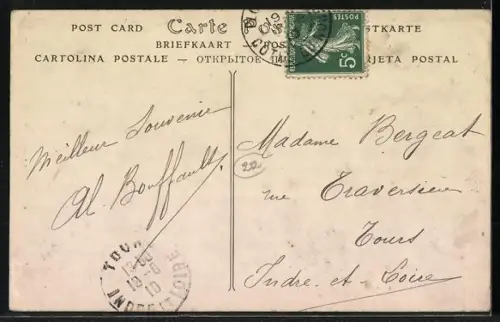 POST CARD Carte POSTKARTE
BRIEFKAART POS
CARTOLINA POSTALE — ОТКРЫТОЕ TARJETA POSTAL
POSTES
5c
Meilleur Souvenir
Al. Bouffault
922
Madame Bergeat
rue Traversière
Tours
Indre-et-Loire
TOURS
INDRE ET LOIRE